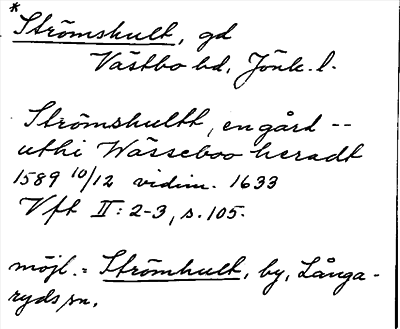 *
Strömshult, gd
Västbo hd, Jönk. l.
Strömshultt, en gård --
uthi Wässeboo heradt
1589 10/12 vidim. 1633
Vft II: 2-3, s. 105.
möjl. = Strömhult, by, Långa-
ryds sn.